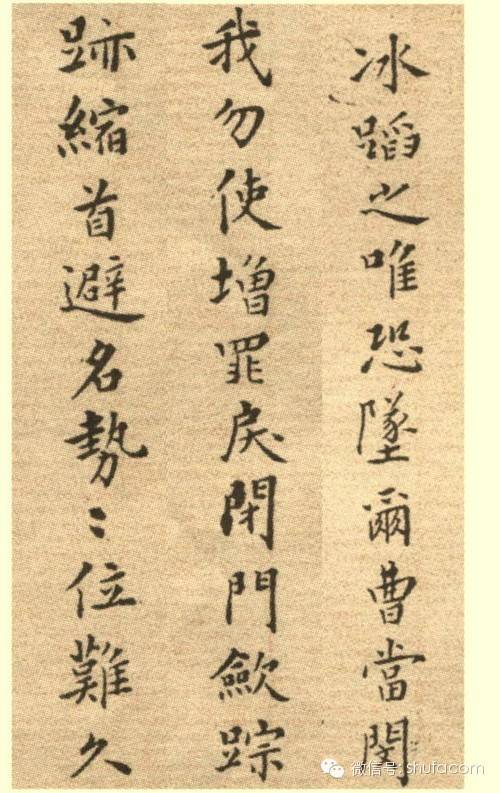 冰蹈之唯恐墜爾曹當閔
我勿使增罪戾閉門斂踪
跡縮首避名勢〻位難久
微信号:shufacom